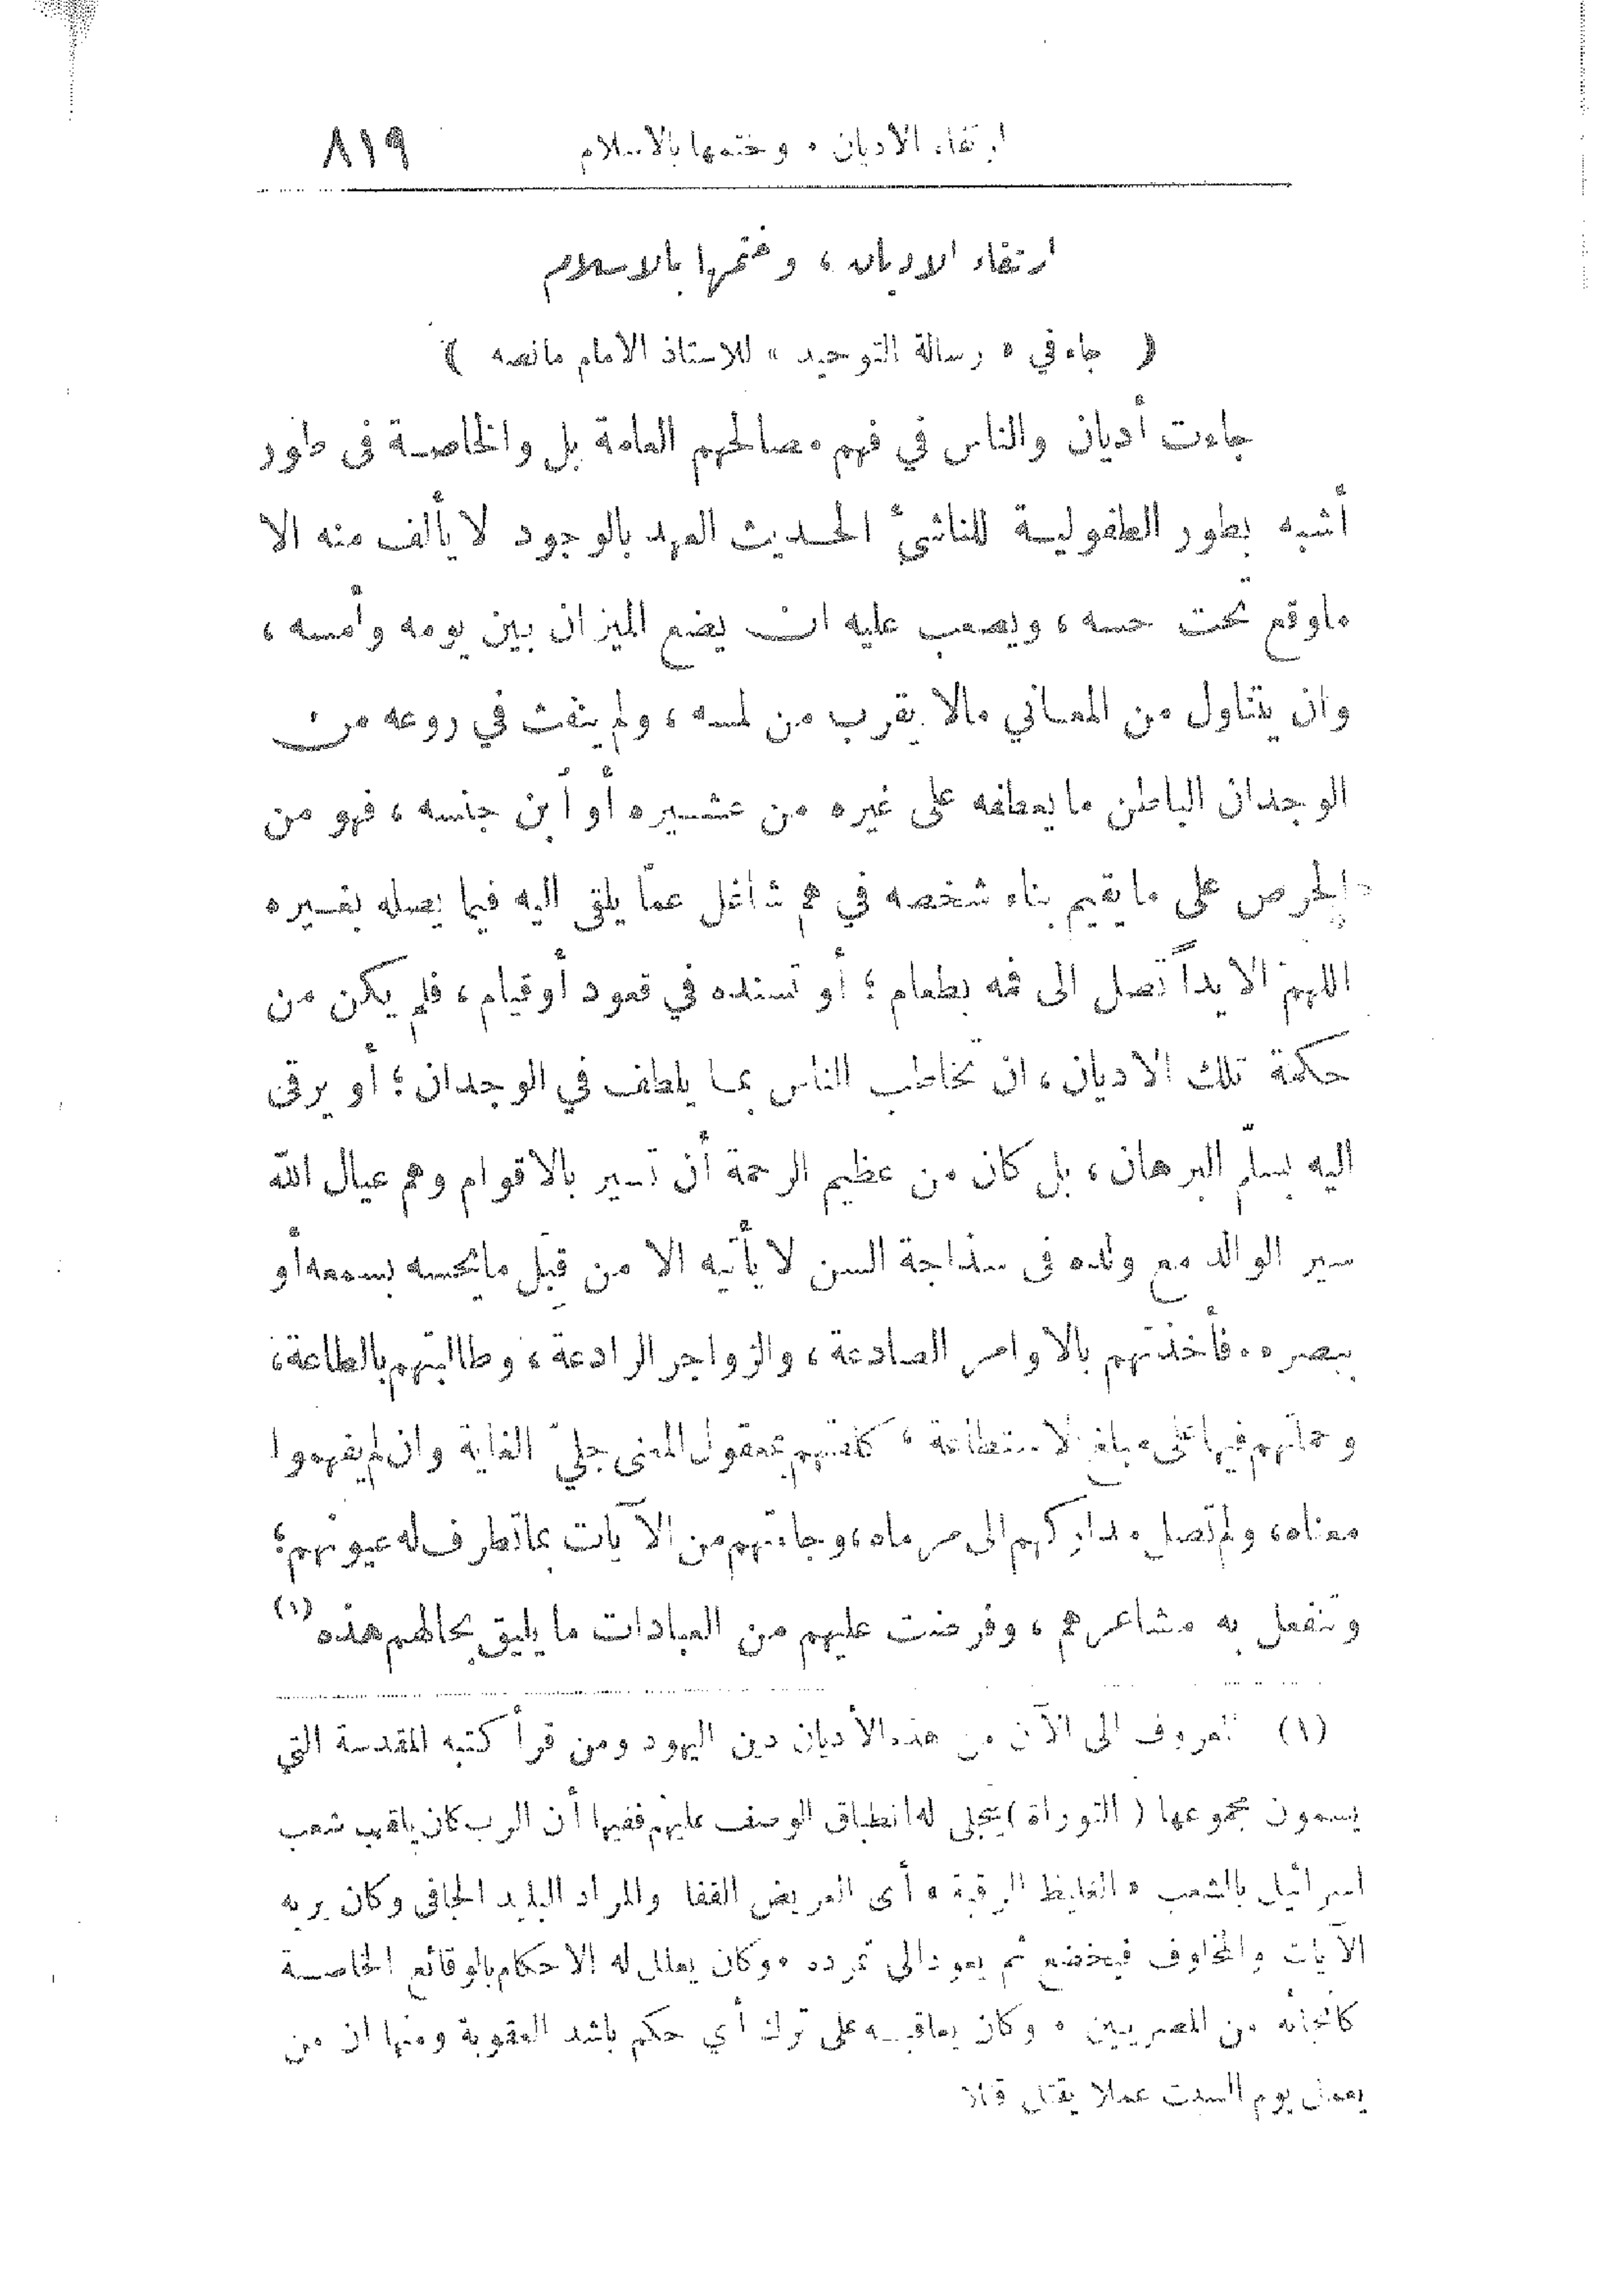 ارتقاء الاديان . وختمها بالاسلام ٨١٩
ارتقاء الاديان ، وختمها بالاسلام
( جاء في « رسالة التوحيد » للاستاذ الامام مانصه )
جاءت أديان والناس في فهم مصالحهم العامة بل والخاصة فى طور
أشبه بطور الطفولية للناشئ الحديث العهد بالوجود لا يألف منه الا
ماوقع تحت حسه ، ويصعب عليه ان يضع الميزان بين يومه وأمسه ،
وان يتناول من المعاني مالا يقرب من لمسه ، ولم ينفث في روعه من
الوجدان الباطن ما يعطفه على غيره من عشيره أو أبن جنسه ، فهو من
الحرص على ما يقيم بناء شخصه في هم شاغل عمّا يلقى اليه فيما يصله بغيره
اللهمّ الا يداً تصل الى فمه بطعام ؛ أو تسنده في قعود أو قيام ، فلم يكن من
حكمة تلك الاديان ، ان تخاطب الناس بما يلطف في الوجدان ؛ أو يرقى
اليه بسلّم البرهان ، بل كان من عظيم الرحمة أن تسير بالاقوام وهم عيال الله
سير الوالد مع ولده فى سذاجة السن لا يأتيه الا من قِبَل مايحسه بسمعه أو
ببصره . فأخذتهم بالاوامر الصادعة ، والزواجر الرادعة ، وطالبتهم بالطاعة ،
وحملتهم فيها على مبلغ الاستطاعة ، كلفتهم بمعقول المعنى جليّ الغاية وان لم يفهموا
معناه ، ولم تصل مداركهم الى مرماه ، وجاءتهم من الآيات بما تطرف له عيونهم ؛
وتنفعل به مشاعرهم ، وفرضت عليهم من العبادات ما يليق بحالهم هذه (١)
(١) المعروف الى الآن من هذه الأديان دين اليهود ومن قرأ كتبه المقدسة التي
يسمون مجموعها ( التوراة ) يتجلى له انطباق الوصف عليهم ففيها أن الرب كان يلقب شعب
اسرائيل بالشعب « الغليظ الرقبة » أى العريض القفا والمراد البليد الجافى وكان يريه
الآيات والمخاوف فيخضع ثم يعود الى تمرده . وكان يعلل له الاحكام بالوقائع الخاصة
كانجائه من المصريين . وكان يعاقبه على ترك أي حكم باشد العقوبة ومنها ان من
يعمل يوم السبت عملا يقتل قتلا